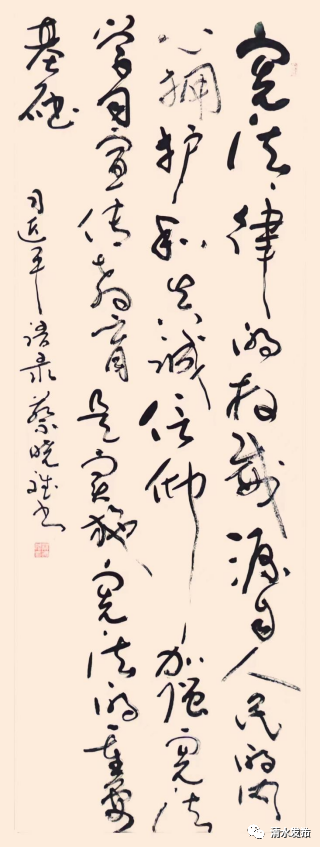 宪法法律的权威源自人民的内
心拥护和真诚信仰加强宪法
学习宣传教育是实施宪法的重要
基础
习近平语录 蔡晓 书
清水发布